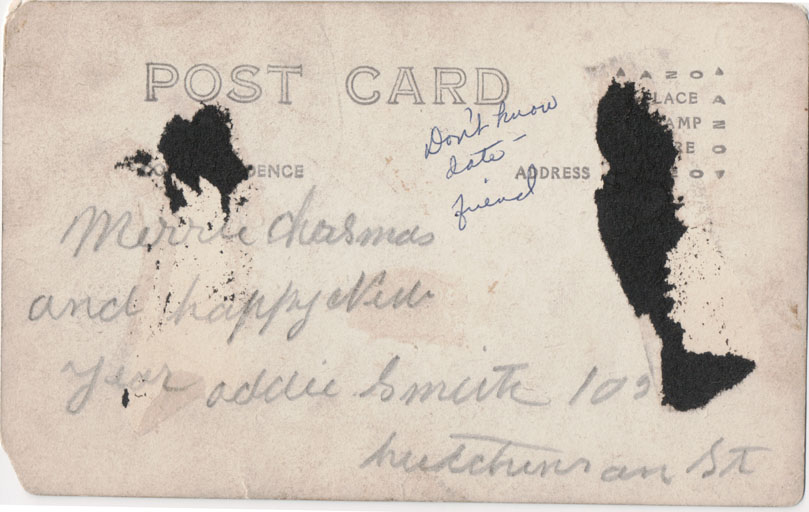 POST CARD
AZO
PLACE
STAMP
HERE
AZO
DENCE
ADDRESS
Don't know
date –
friend
Merrie Chrismas
and happy New
year addie Smith 109
hutchins an St